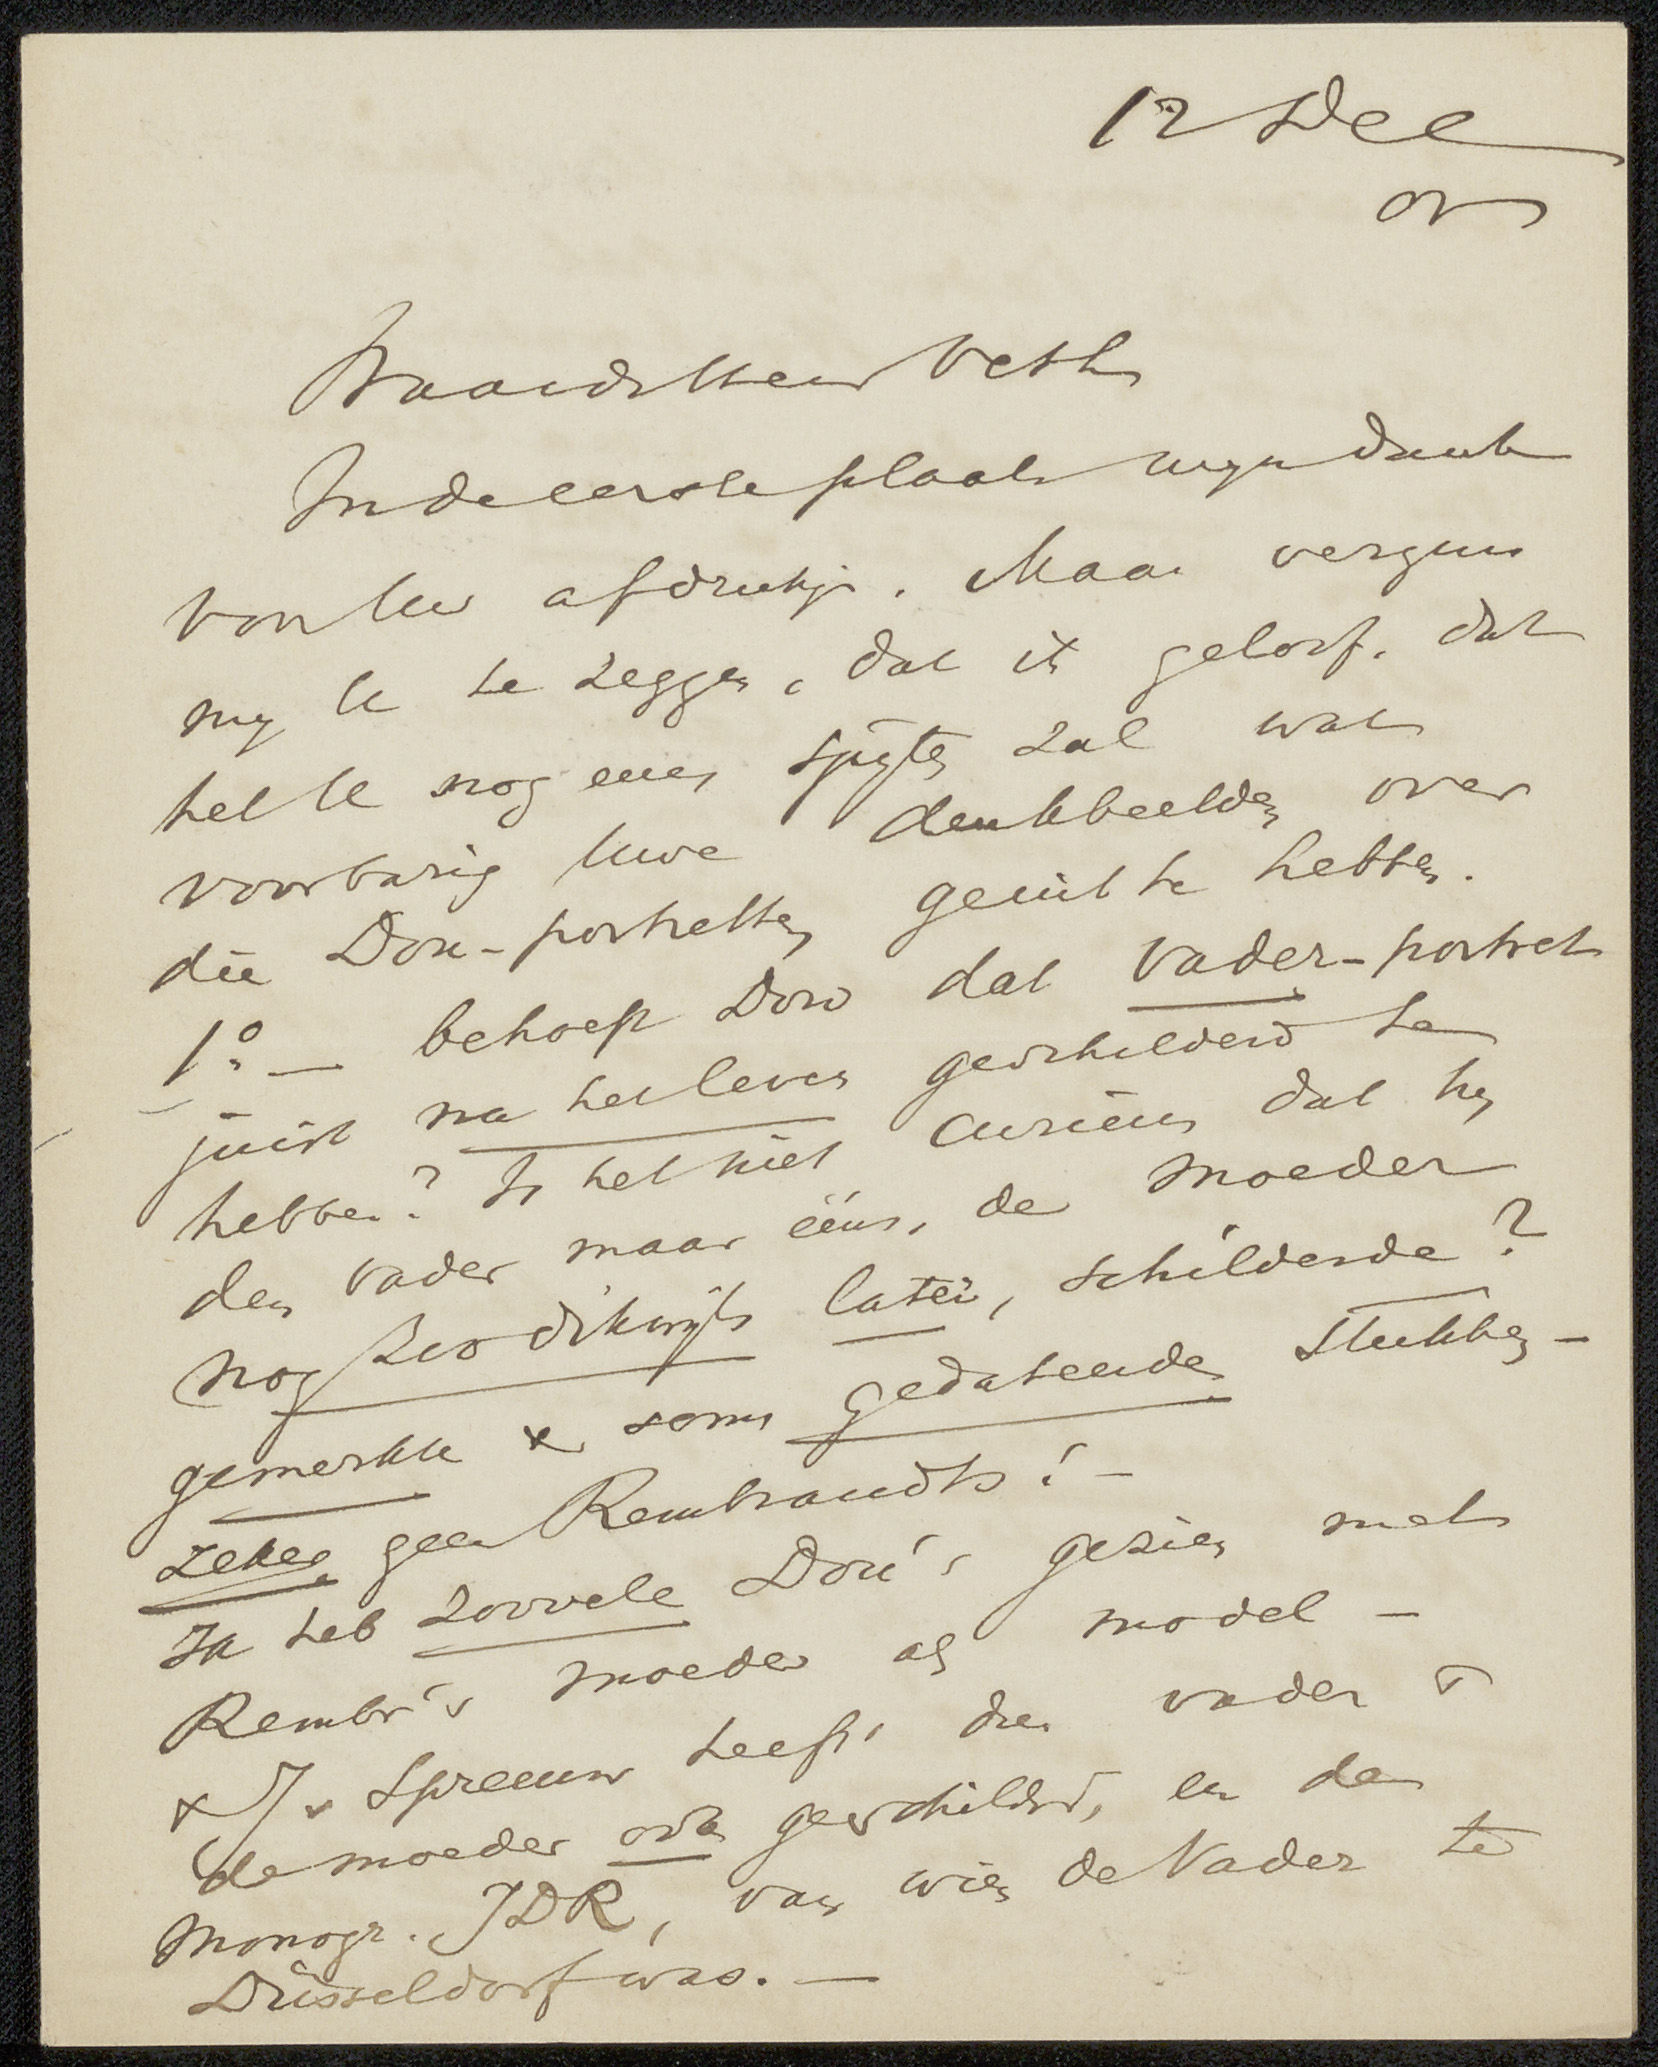 12 Dec
05
Waarde Heer Veth
In de eerste plaats myn dank
voor Uw afdrukje. Maar vergun
my U te zeggen, dat ik geloof, dat
het U nog eens spyten zal wat
voorbarig Uwe denkbeelden over
die Dou-portretten geuit te hebben.
1o. — behoeft Dou dat vader-portret
juist na het leven geschilderd te
hebben? Is het niet curieus dat hy
den vader maar ééns, de moeder
nog zoo dikwyls later, schilderde?
gemerkte & soms gedateerde stukken —
zeker geen Rembrandts! —
Ik heb zoovele Dou's gezien met
Rembr's moeder als model —
& J. v. Spreeuw heeft den vader &
de moeder ook geschilderd, en de
Monogr. JDR, van wien de Vader te
Düsseldorf was. —